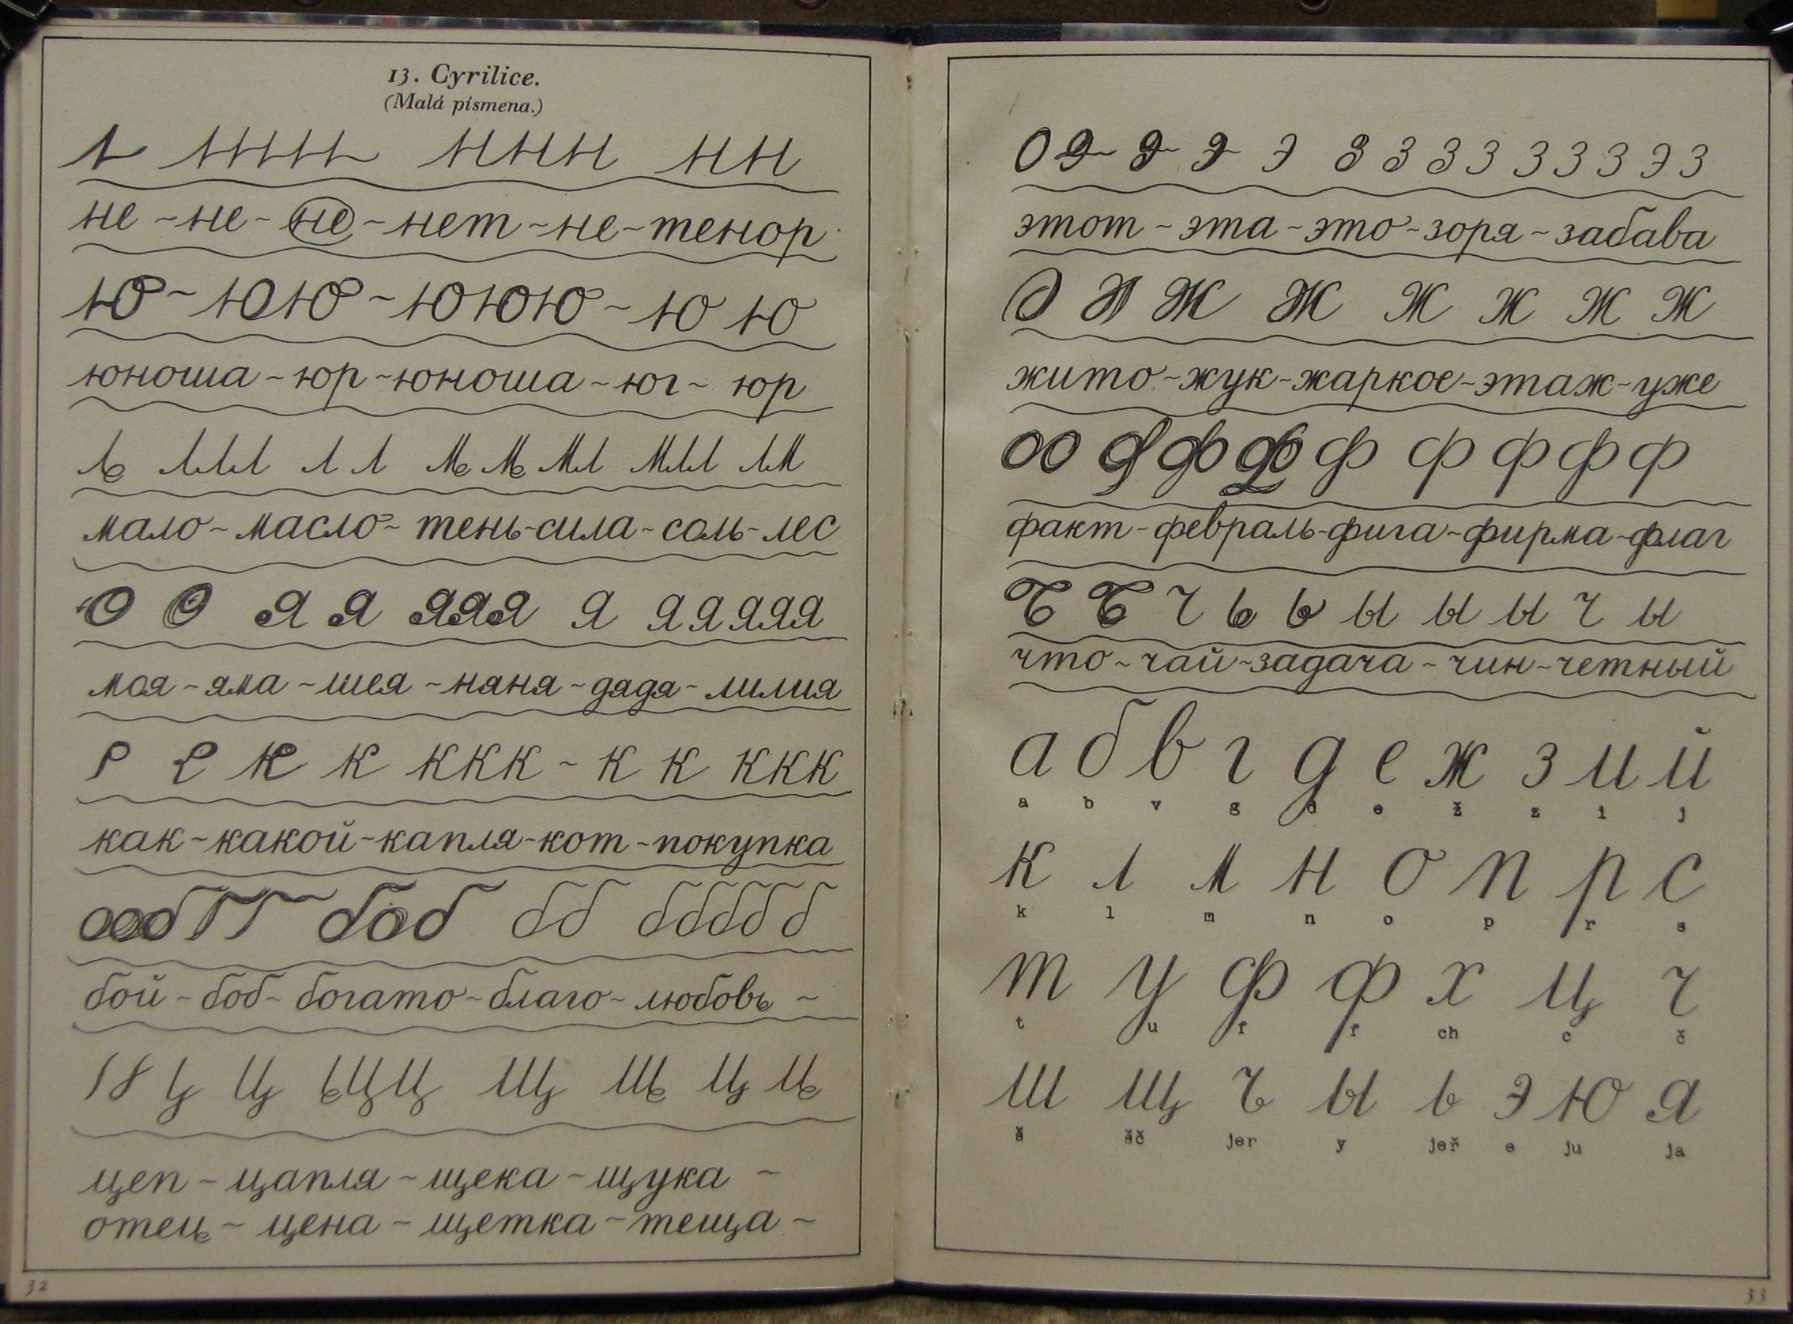 13. Cyrilice.
(Malá písmena.)
н н н н н
не - не - не - нет - не - тенор
ю - ю ю - ю ю ю - ю ю
юноша - юр - юноша - юг - юр
л л л л л л м м м л м л л л м
мало - масло - тень - сила - соль - лес
о о я я я я я я я я я я я
моя - яма - шея - няня - дядя - лилия
к к к к к - к к к к к
как - какой - капля - кот - покупка
б б б б б б б б б б
бой - боб - богато - благо - любовь -
ц ц ц щ щ ц ц
цеп - цапля - щека - щука -
отец - цена - щетка - теща -
32
о э э э э з з з з з з з э з
этот - эта - это - зоря - забава
ж ж ж ж ж ж ж
жито - жук - жаркое - этаж - уже
о о ф ф ф ф ф ф ф ф
факт - февраль - фига - фирма - флаг
ч ч ч ь ь ы ы ы ч ы
что - чай - задача - чин - четный
а б в г д е ж з и й
a b v g d e ž z i j
к л м н о п р с
k l m n o p r s
т у ф ф х ц ч
t u f f ch c č
ш щ ъ ы ь э ю я
š šč jer y jeř e ju ja
33